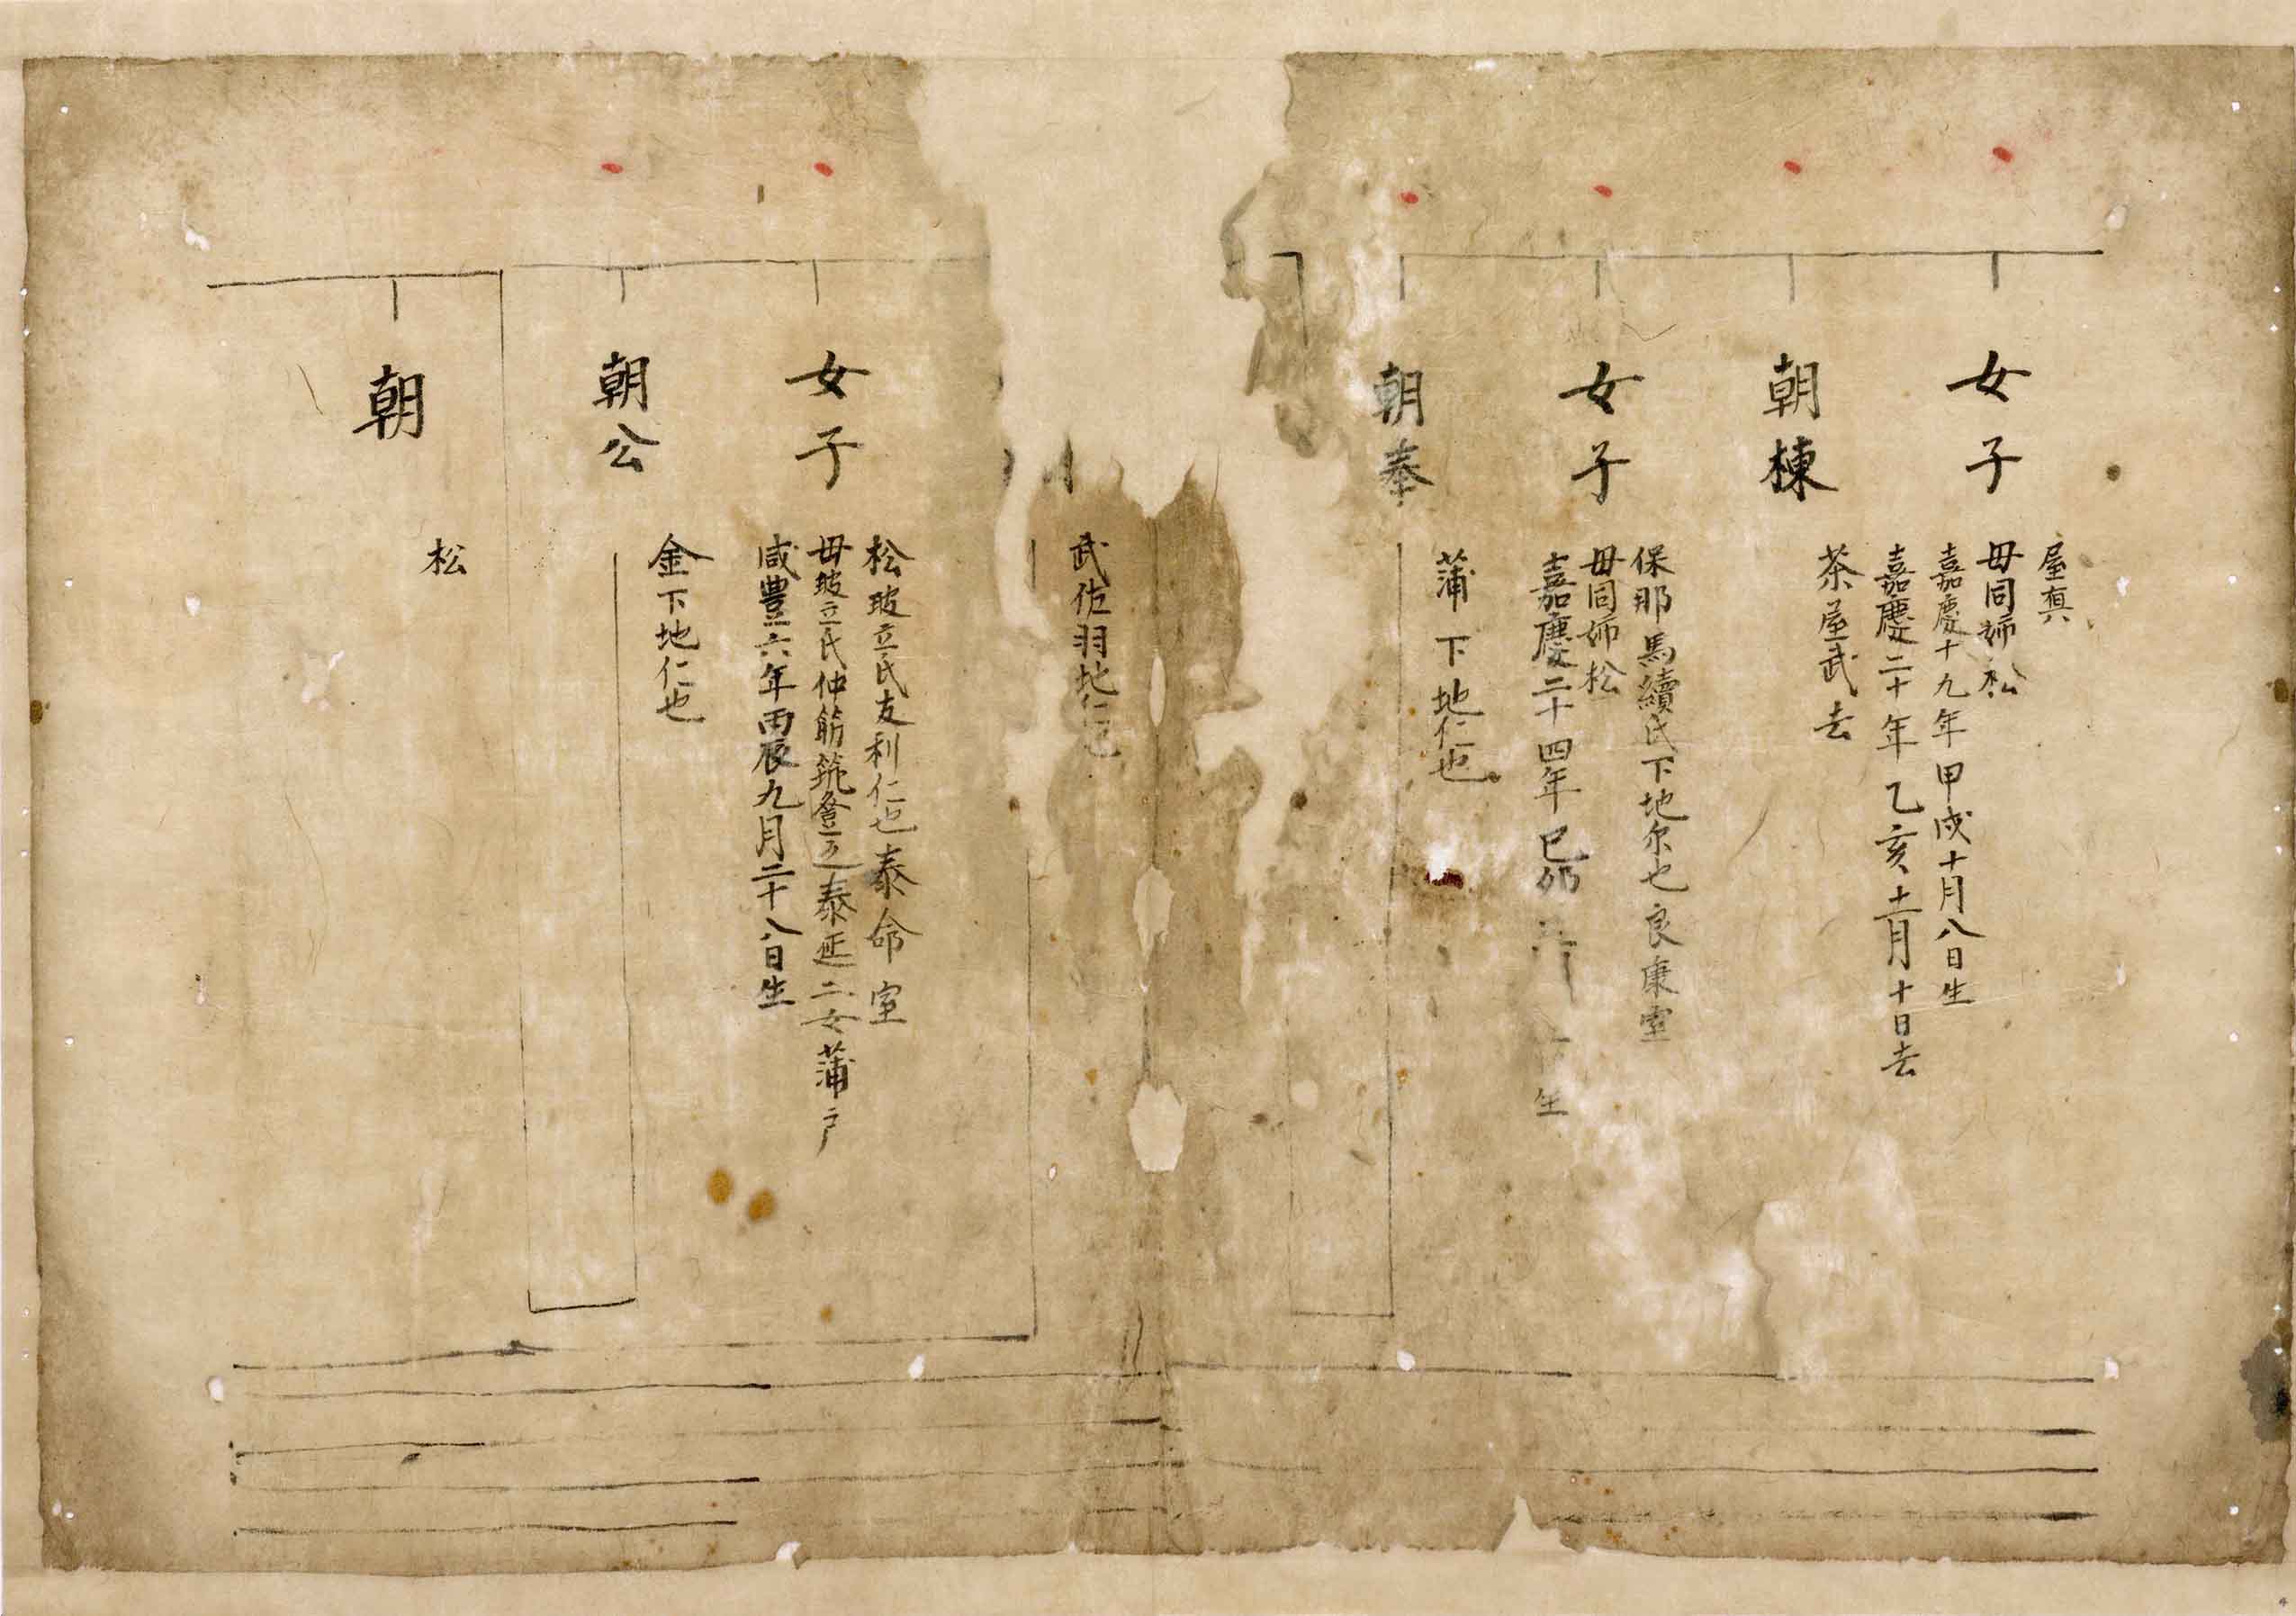 屋真
女子
毋同婦松
嘉慶十九年甲戌十月八日生
嘉慶二十年乙亥十二月十日去
朝棟
茶屋武去
保那馬續氏下地尔也良康室
女子
毋同婦松
嘉慶二十四年己卯
生
朝奉
蒲下地仁也
武佐羽地仁也
松玻立氏友利仁也泰命室
女子
毋玻立氏仲筋筑登之泰延二女蒲戸
咸豊六年丙辰九月二十八日生
朝公
金下地仁也
朝
松